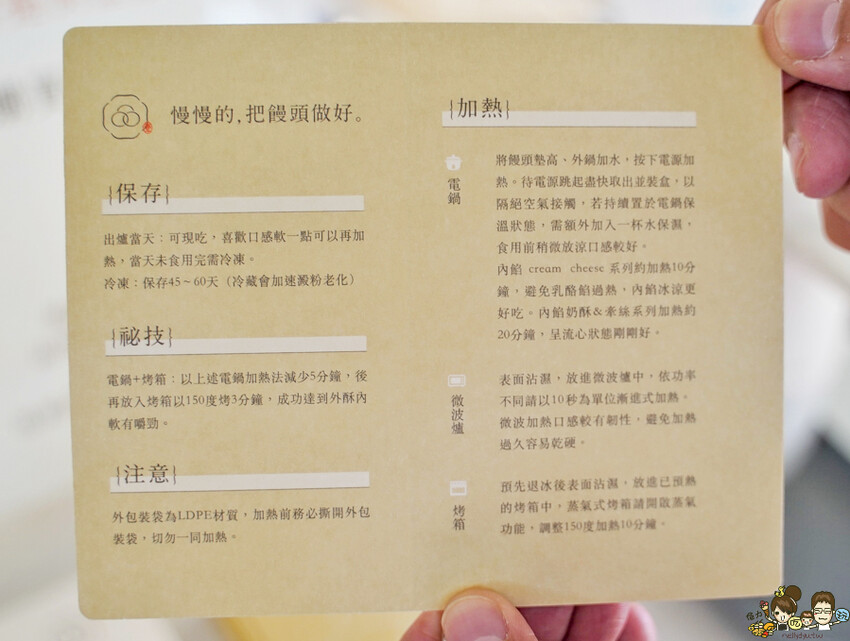 慢慢的,把饅頭做好。
{保存}
出爐當天：可現吃，喜歡口感軟一點可以再加
熱，當天未食用完需冷凍。
冷凍：保存45~60天（冷藏會加速澱粉老化）
{祕技}
電鍋+烤箱：以上述電鍋加熱法減少5分鐘，後
再放入烤箱以150度烤3分鐘，成功達到外酥內
軟有嚼勁。
{注意}
外包裝袋為LDPE材質，加熱前務必撕開外包
裝袋，切勿一同加熱。
{加熱}
電鍋
將饅頭墊高、外鍋加水，按下電源加
熱。待電源跳起盡快取出並裝盒，以
隔絕空氣接觸，若持續置於電鍋保
溫狀態，需額外加入一杯水保濕，
食用前稍微放涼口感較好。
內餡 cream cheese 系列約加熱10分
鐘，避免乳酪餡過熱，內餡冰涼更
好吃。內餡奶酥&牽絲系列加熱約
20分鐘，呈流心狀態剛剛好。
微波爐
表面沾濕，放進微波爐中，依功率
不同請以10秒為單位漸進式加熱。
微波加熱口感較有韌性，避免加熱
過久容易乾硬。
烤箱
預先退冰後表面沾濕，放進已預熱
的烤箱中，蒸氣式烤箱請開啟蒸氣
功能，調整150度加熱10分鐘。